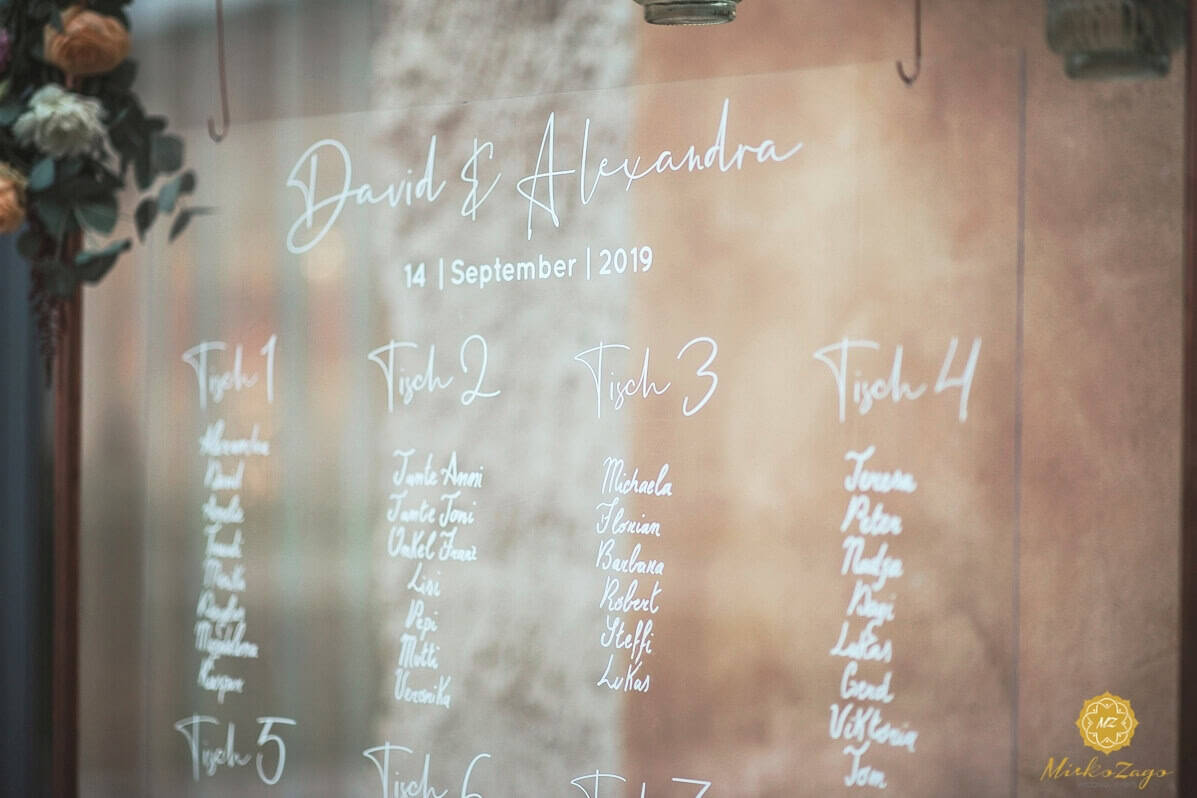 David & Alexandra
14 | September | 2019
Tisch 1
Alexandra
David
Magdalena
Kaspar
Tisch 2
Tante Anni
Tante Toni
Onkel Franz
Lisi
Pepi
Mutti
Veronika
Tisch 3
Michaela
Florian
Barbara
Robert
Steffi
Lukas
Tisch 4
Teresa
Peter
Nadja
Lukas
Gerd
Viktoria
Tom
Tisch 5
Tisch 6
Tisch 7
MZ
Mirko Zago